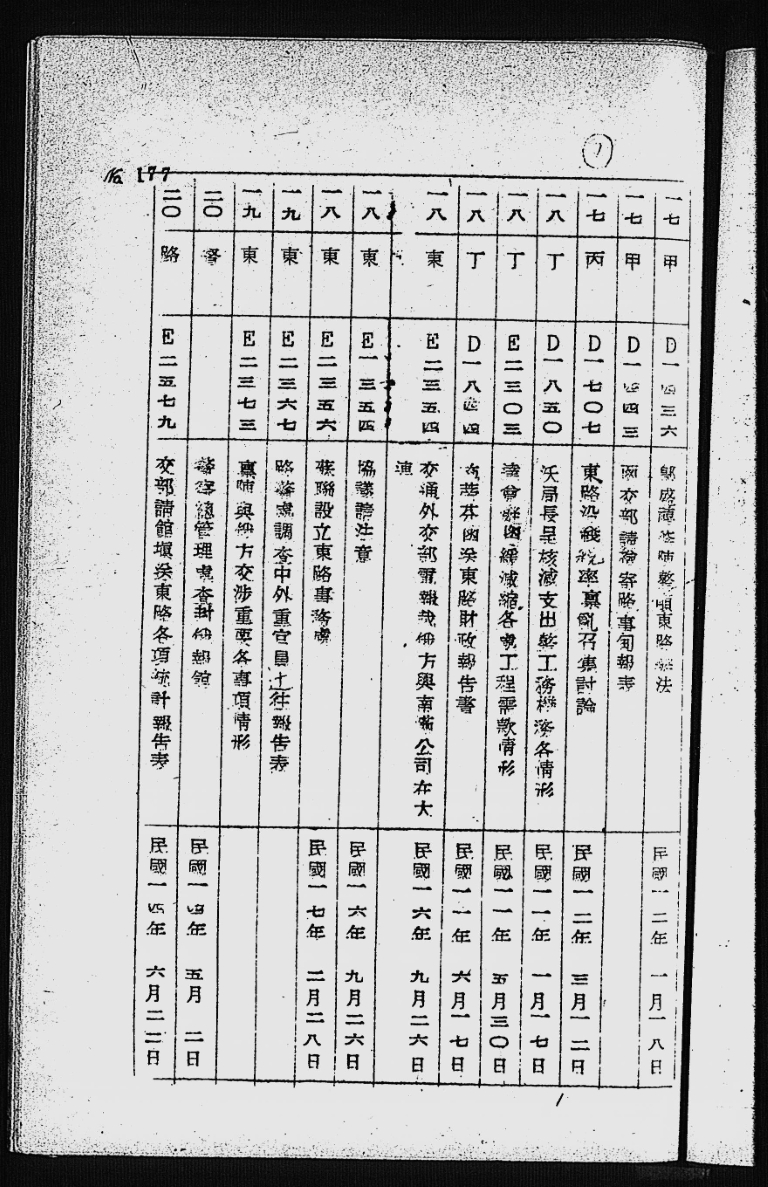 № 177
1
一七 甲 D一四三六 東路辦法 民國一二年 一月一八日
一七 甲 D一四四三 函交部請 寄路事旬報表
一七 丙 D一七〇七 東路 稅率 召集討論 民國一二年 三月一二日
一八 丁 D一八五〇 沃局長呈核減支出 工務 各情形 民國一一年 一月一七日
一八 丁 E二三〇三 減縮各處工程需款情形 民國一一年 五月三〇日
一八 丁 D一八四四 函送東路財政報告書 民國一一年 六月一七日
一八 東 E二三五四 交通外交部電報 方與南滿公司在大
連 民國一六年 九月二六日
一八 東 E一三五四 協議請注意 民國一六年 九月二六日
一八 東 E二三五六 蘇聯設立東路事務處 民國一七年 二月二八日
一九 東 E二三六七 路 處調查中外重 員 報告表
一九 東 E二三七三 與俄方交涉重要各事項情形
二〇 督 總管理處查封俄報館 民國一四年 五月 二日
二〇 路 E二五七九 交部請館填送東路各項統計報告表 民國一四年 六月二二日
1